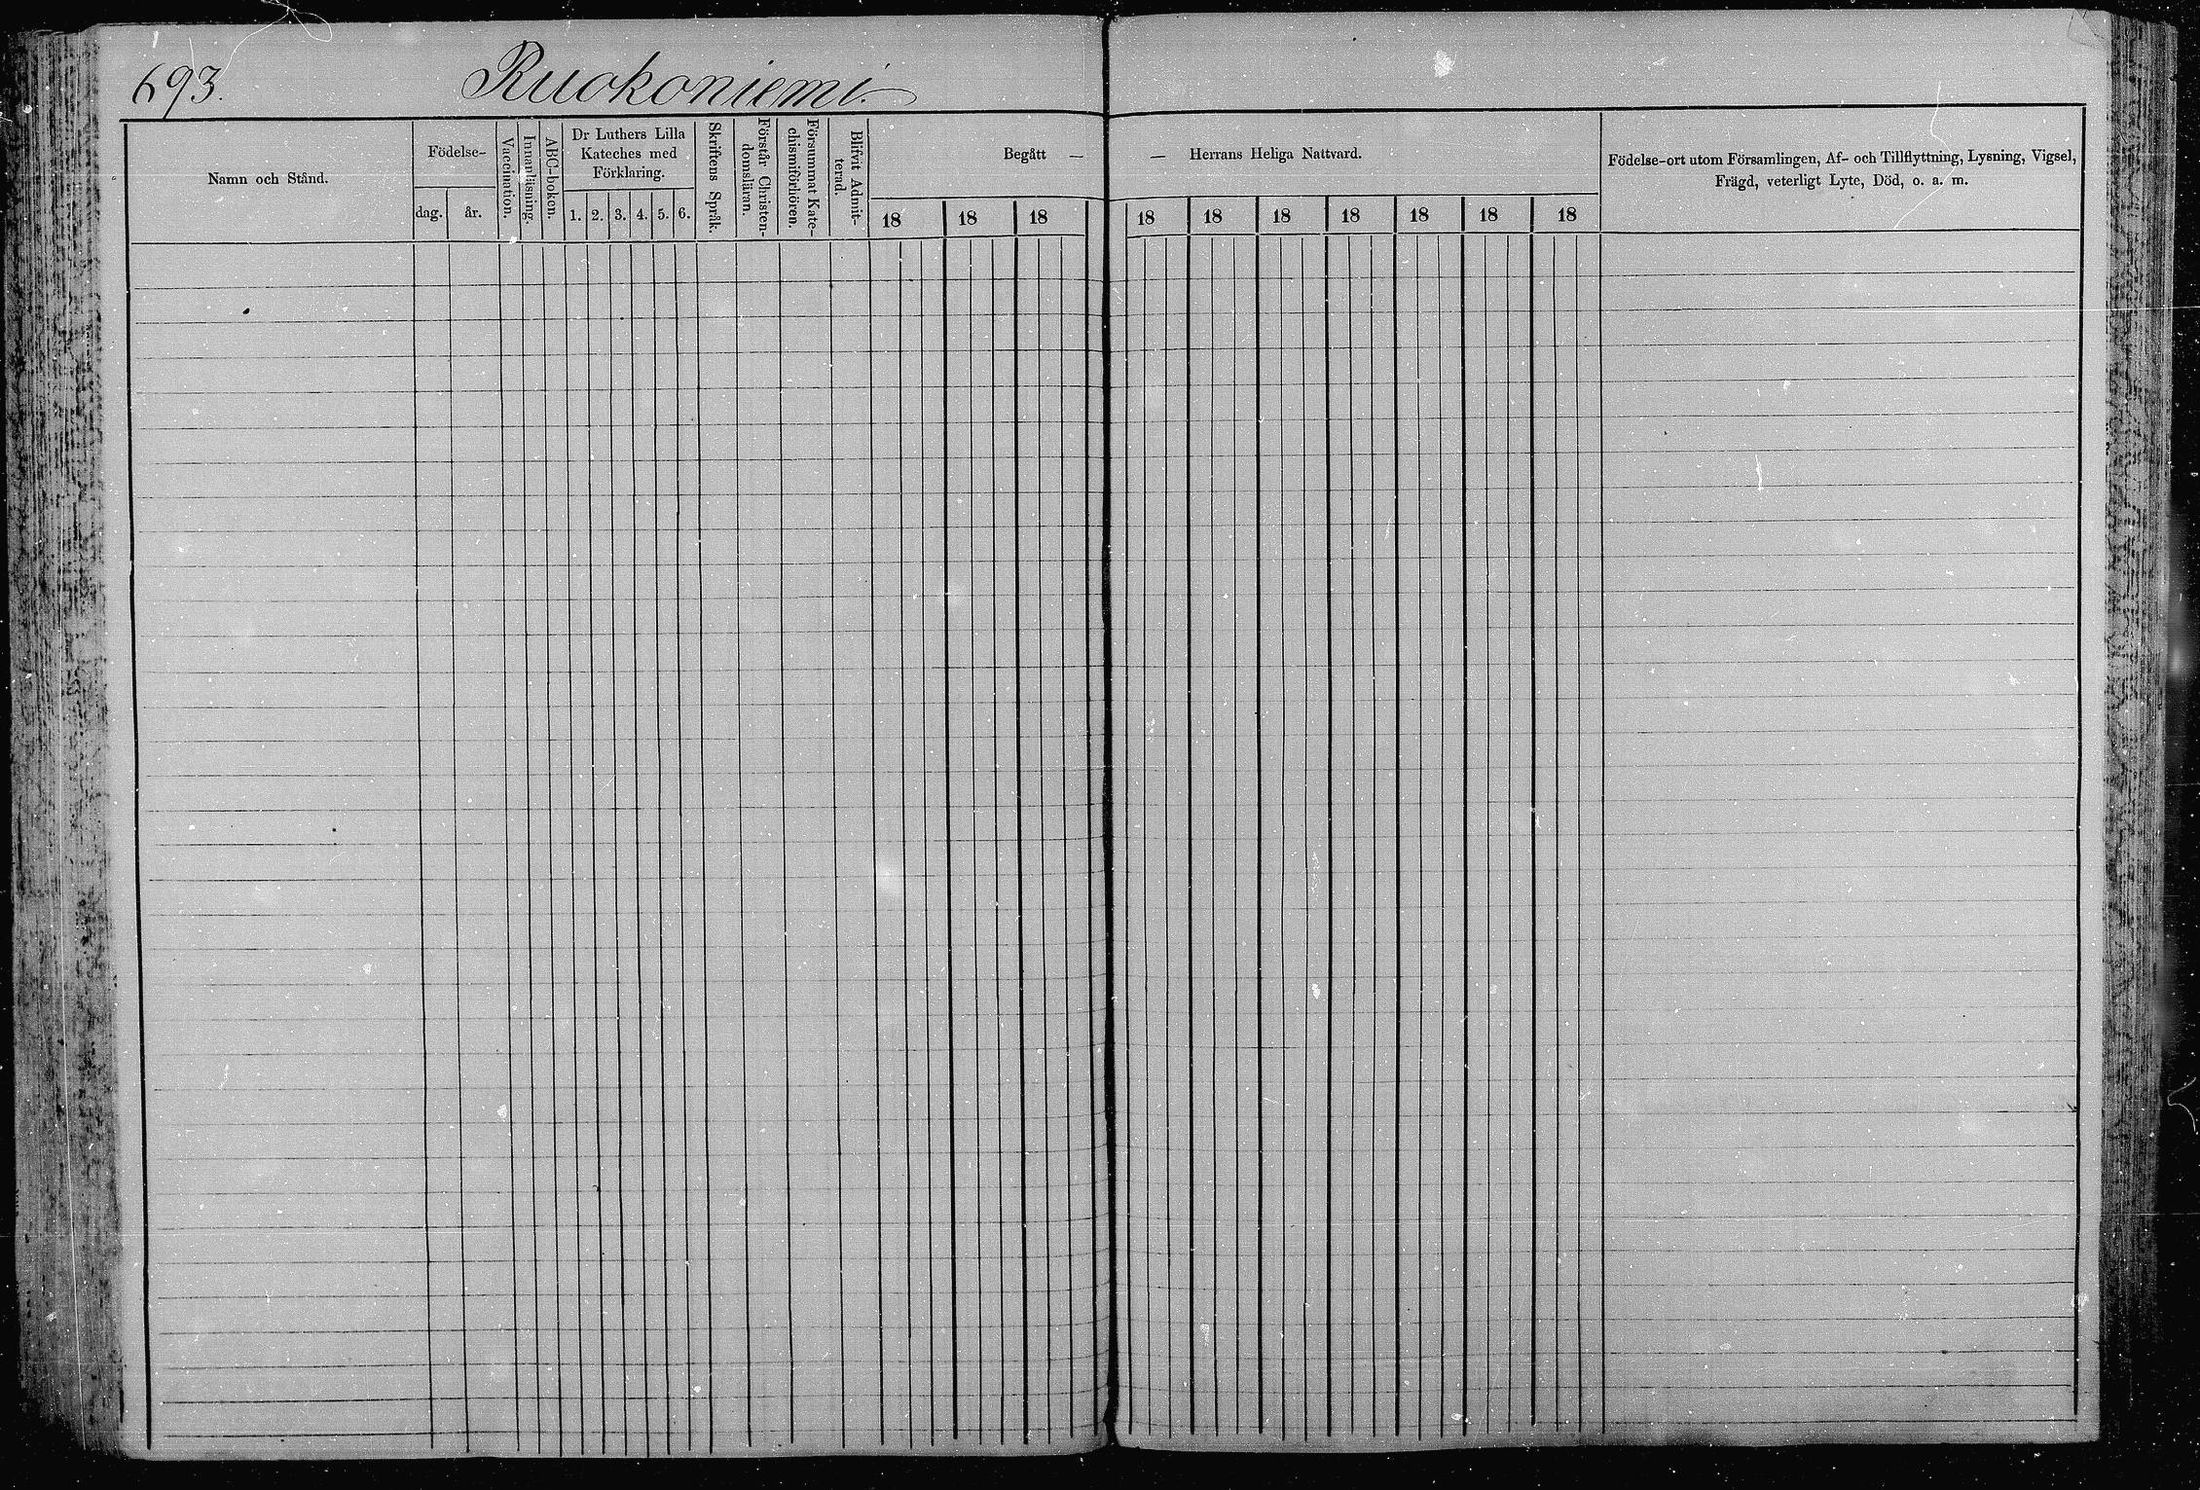 693. Ruokoniemi.
Namn och Stånd.
Födelse-
dag. år.
Vaccination.
Innanläsning.
ABC-boken.
Dr Luthers Lilla
Kateches med
Förklaring.
1. 2. 3. 4. 5. 6.
Skriftens Språk.
Förstår Christen-
domsläran.
Försummat Kate-
chismiförhören.
Blifvit Admit-
terad.
Begått — — Herrans Heliga Nattvard.
18 18 18 18 18 18 18 18 18 18
Födelse-ort utom Församlingen, Af- och Tillflyttning, Lysning, Vigsel,
Frägd, veterligt Lyte, Död, o. a. m.